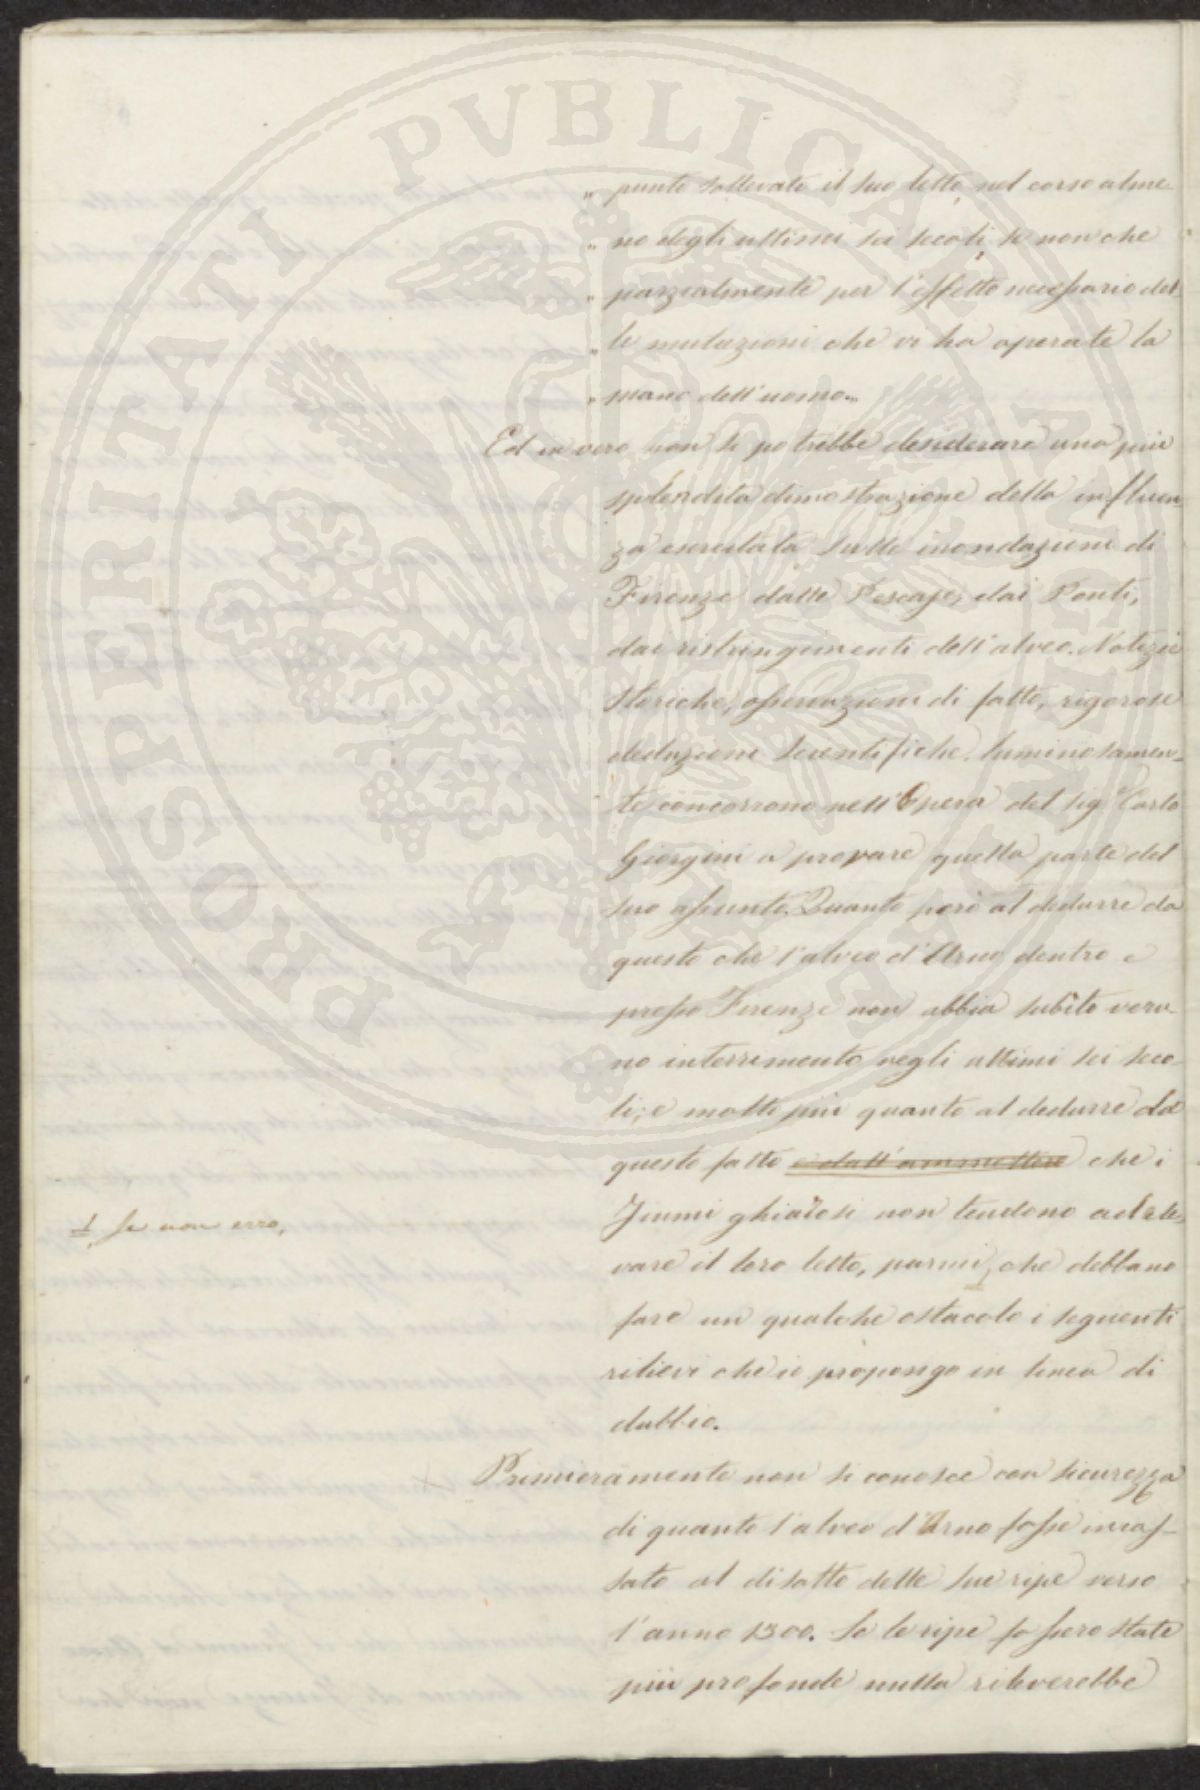 PROSPERITATI PVBLICAE AVGENDAE
„ punto sollevato il suo letto, nel corso alme-
„ no degli ultimi sei secoli, se non che
„ parzialmente per l'effetto necessario del-
„ le mutazioni che vi ha operate la
„ mano dell'uomo.„
Ed in vero non si potrebbe desiderare una più
splendida dimostrazione della influen-
za esercitata sulle inondazioni di
Firenze dalle Pescaje, dai Ponti,
dai ristringimenti dell'alveo. Notizie
storiche, osservazioni di fatto, rigorose
deduzioni scientifiche luminosamen-
te concorrono nell'Opera del Sig. Carlo
Giorgini a provare quella parte del
suo assunto. Quanto però al dedurre da
questo che l'alveo d'Arno dentro e
presso Firenze non abbia subìto veru-
no interrimento negli ultimi sei seco-
li; e molto più quanto al dedurre da
questo fatto e dall'ammettere che i
Fiumi ghiaiosi non tendono ad ele-
vare il loro letto, parmi, che debbano
1 se non erro,
fare un qualche ostacolo i seguenti
rilievi che io propongo in linea di
dubbio.
Primieramente non si conosce con sicurezza
di quanto l'alveo d'Arno fosse incas-
sato al disotto delle sue ripe verso
l'anno 1300. Se le ripe fossero state
più profonde nulla rileverebbe